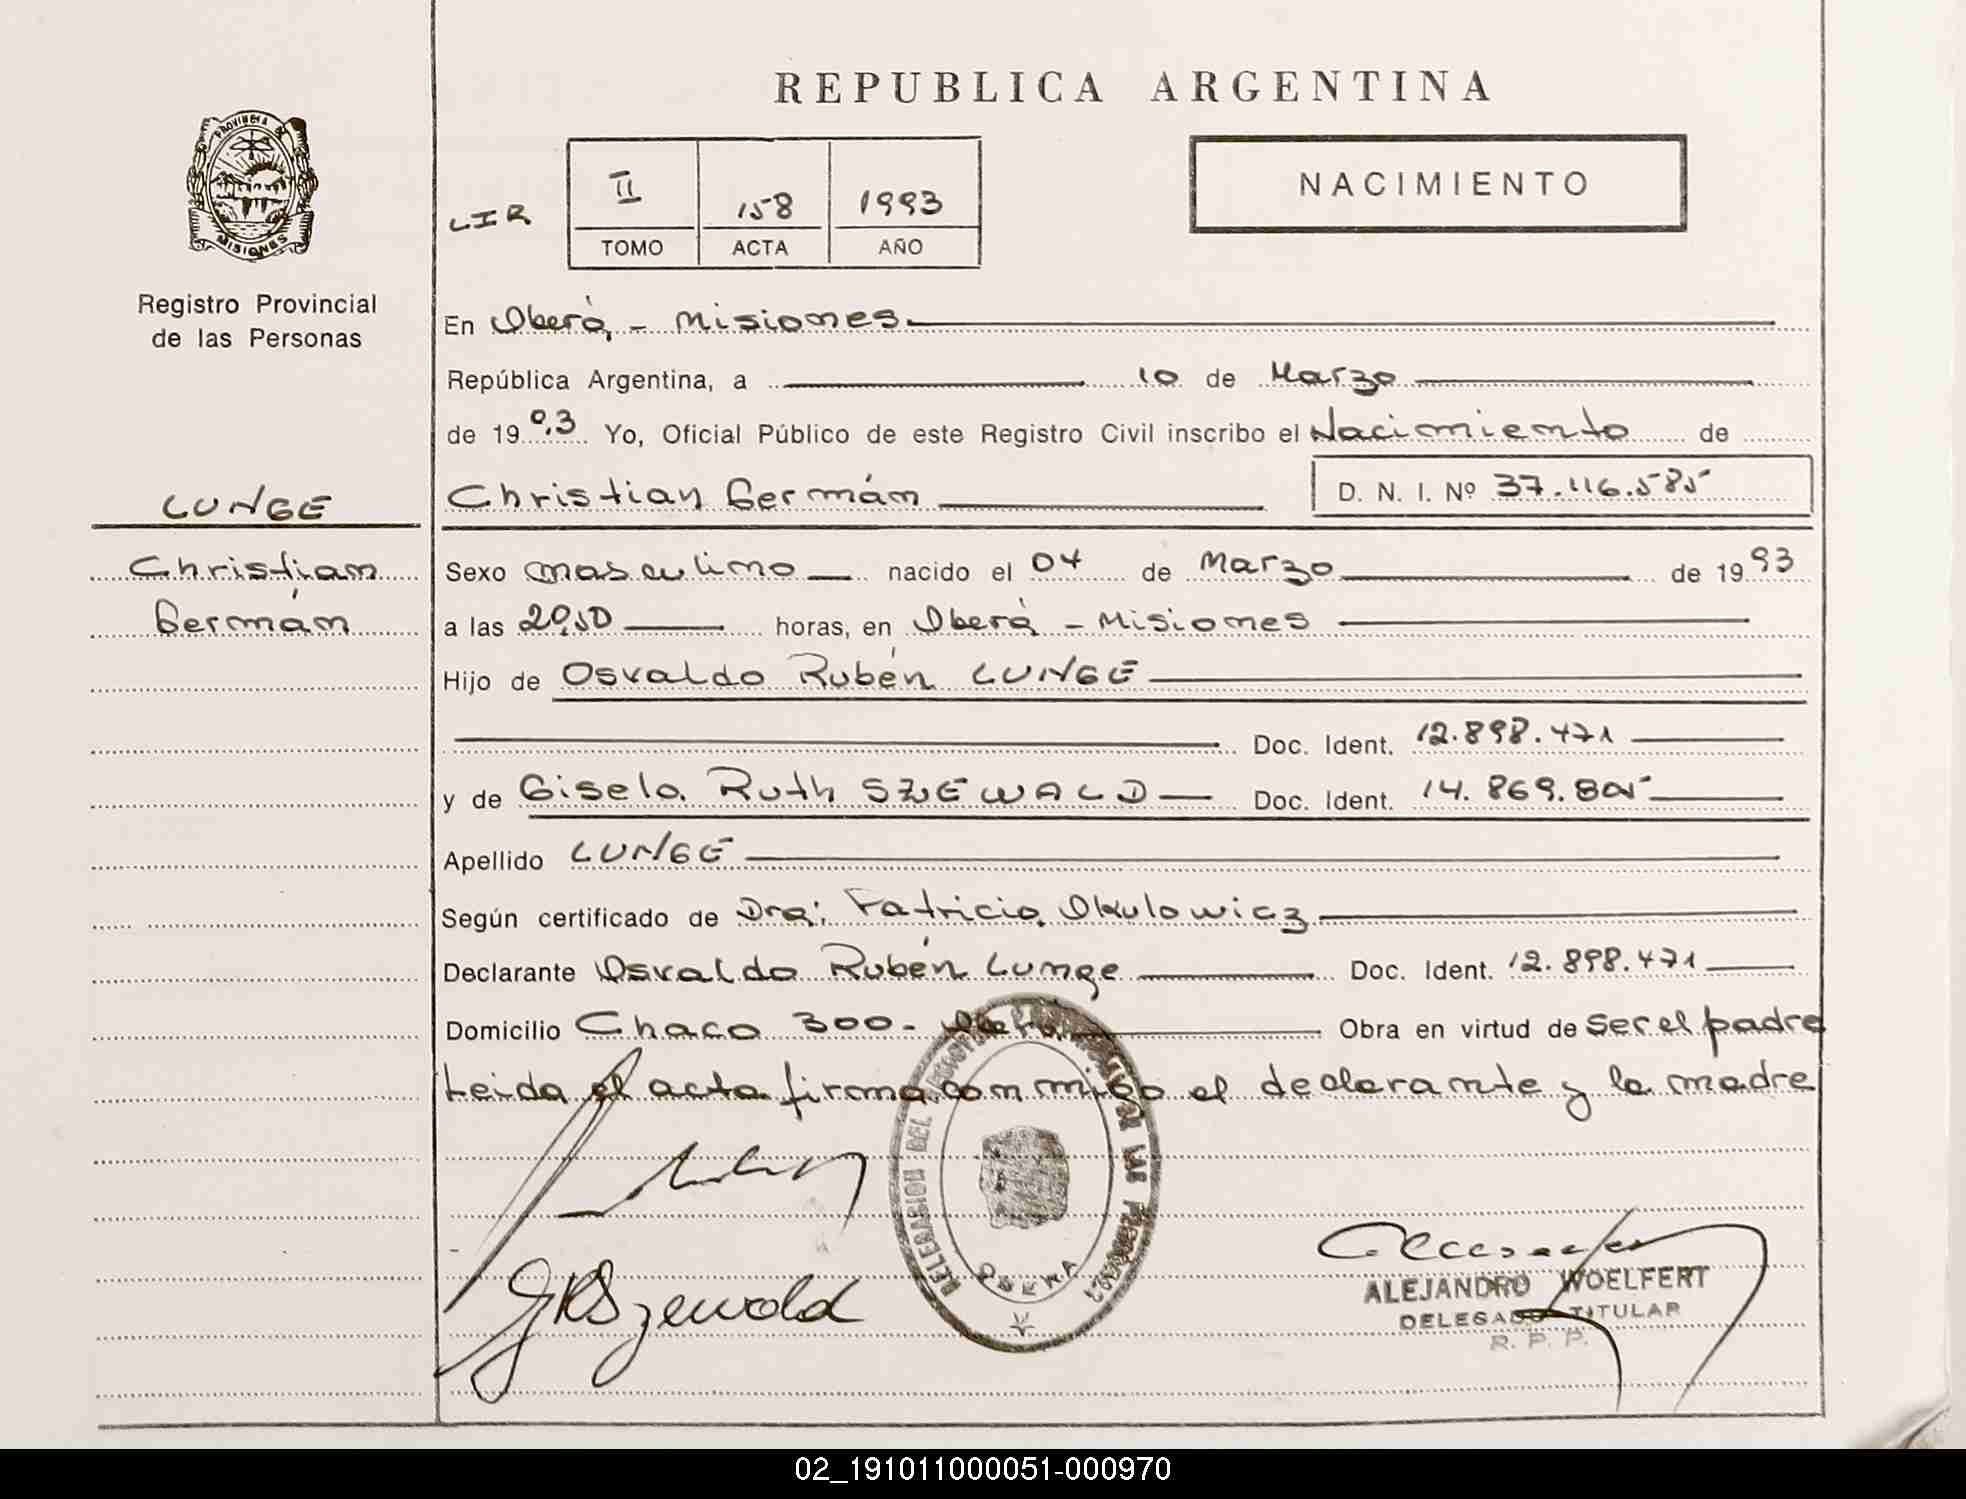 REPUBLICA ARGENTINA
PROVINCIA DE
MISIONES
Registro Provincial
de las Personas
LIR
II 158 1993
TOMO ACTA AÑO
NACIMIENTO
En Oberá, - Misiones
República Argentina, a 10 de Marzo
de 19 93 Yo, Oficial Público de este Registro Civil inscribo el Nacimiento de
Christian Germán D. N. I. Nº 37.116.585
LUNGE
Christian
Germán
Sexo masculino nacido el 04 de Marzo de 19 93
a las 20,50 horas, en Oberá - Misiones
Hijo de Osvaldo Rubén LUNGE
Doc. Ident. 12.898.471
y de Gisela Ruth SZEWALD Doc. Ident. 14.869.805
Apellido LUNGE
Según certificado de Dra: Patricia Okulowicz
Declarante Osvaldo Rubén Lunge Doc. Ident. 12.898.471
Domicilio Chaco 300 - Oberá Obra en virtud de ser el padre
Leida el acta firma conmigo el declarante y la madre
DELEGACION DEL REGISTRO PROVINCIAL DE LAS PERSONAS
OBERA
GRSzewald
ALEJANDRO WOELFERT
DELEGADO TITULAR
R. P. P.
02_191011000051-000970